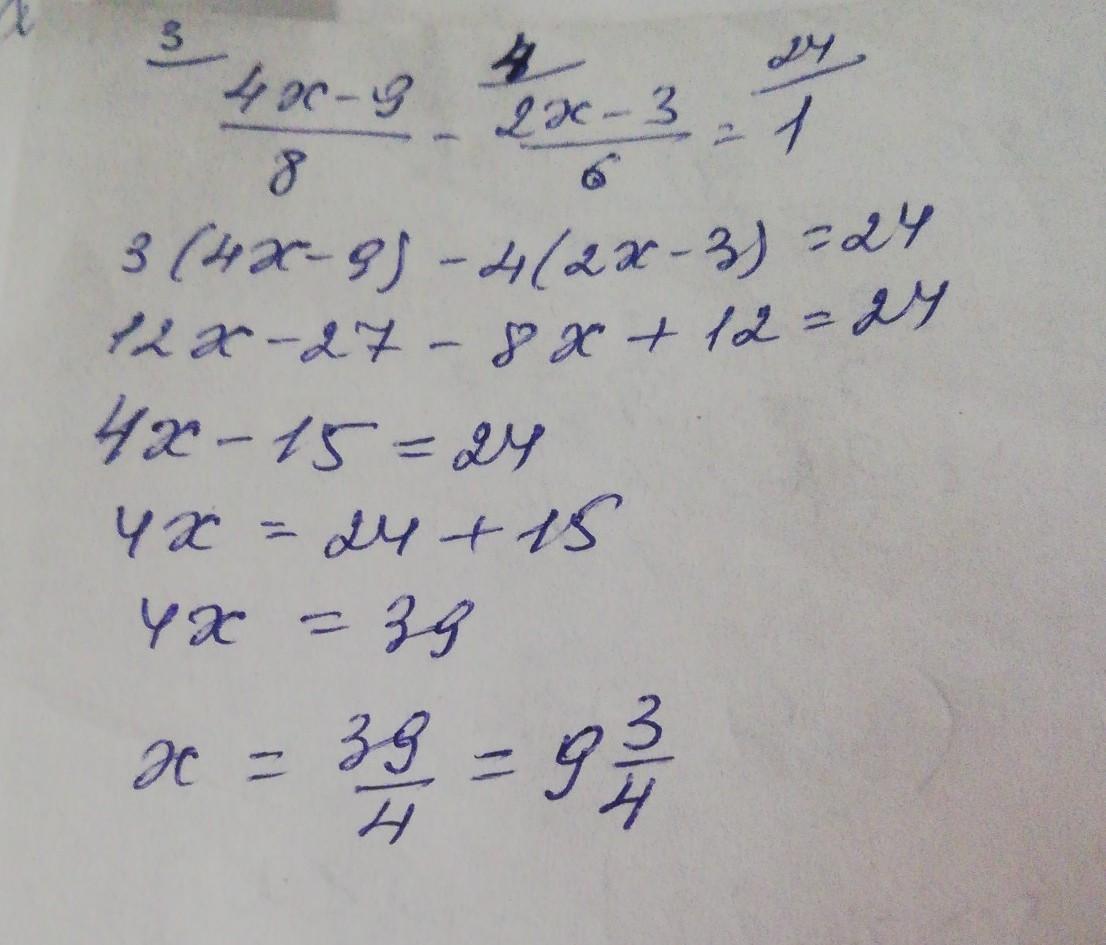 3 4 24
4x-9 / 8 - 2x-3 / 6 = 1
3(4x-9) -4(2x-3) =24
12x-27 - 8x + 12=24
4x-15 = 24
4x = 24 + 15
4x = 39
x = 39/4 = 9 3/4